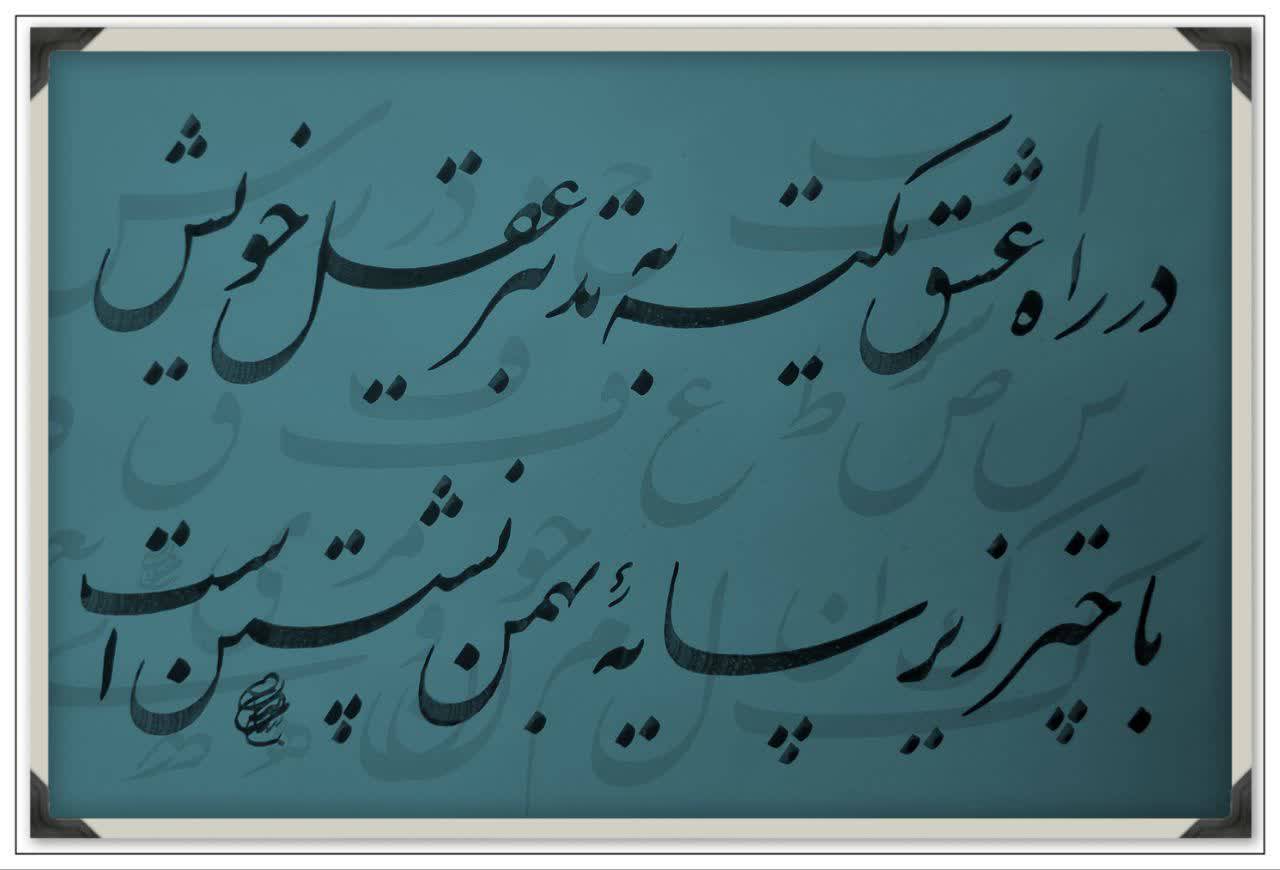 در راه عشق تکیه به تدبیر عقل خویش
با چتر زیر سایۀ بهمن نشستن است